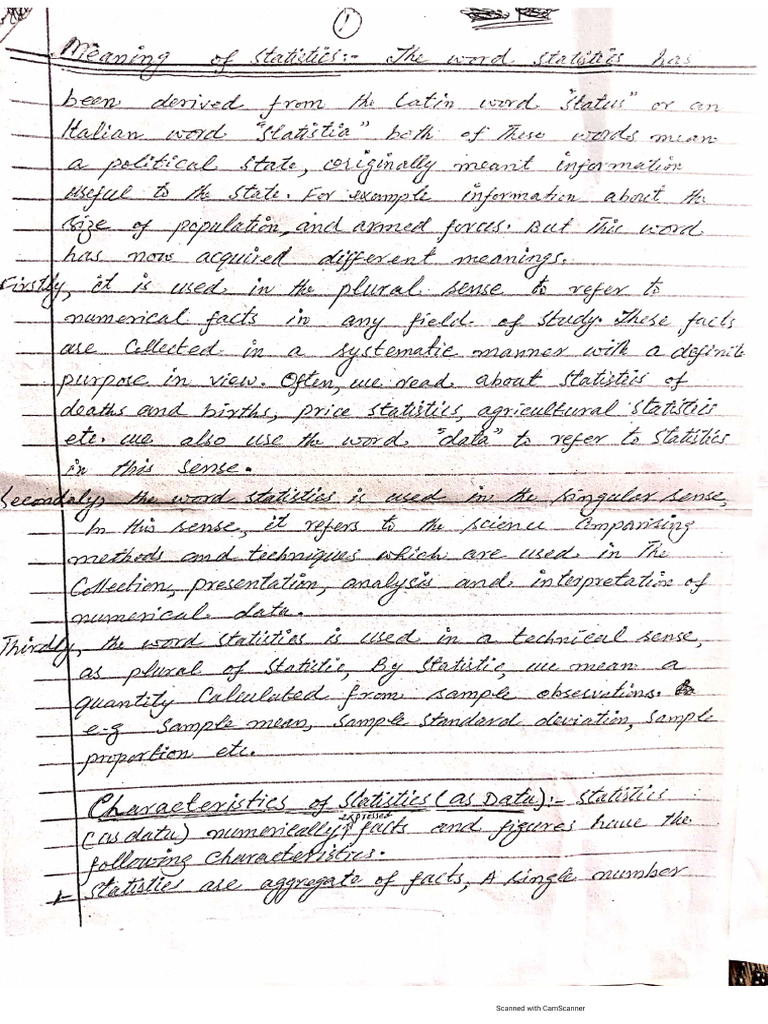 1
Meaning of Statistics:- The word statistics has
been derived from the Latin word "Status" or an
Italian word "Statistia" both of these words mean
a political state, originally meant information
useful to the state. For example information about the
size of population, and armed forces. But This word
has now acquired different meanings.
Firstly, it is used in the plural sense to refer to
numerical facts in any field of study. These facts
are Collected in a systematic manner with a definite
purpose in view. Often, we read about Statistics of
deaths and births, price statistics, agricultural statistics
etc. we also use the word "data" to refer to statistics
in this sense.
Secondaly, the word statistics is used in the singular sense,
In this sense, it refers to the science Comparising
methods and techniques which are used in The
Collection, presentation, analysis and interpretation of
numerical data.
Thirdly, the word statistics is used in a technical sense,
as plural of Statistic, By Statistic, we mean a
quantity Calculated from sample observations.
e-g Sample mean, Sample standard deviation, Sample
proportion etc.
Characteristics of Statistics (as Data):- Statistics
(as data) numerically expressed facts and figures have the
following Characteristics.
1- Statistics are aggregate of facts, A single number
Scanned with CamScanner